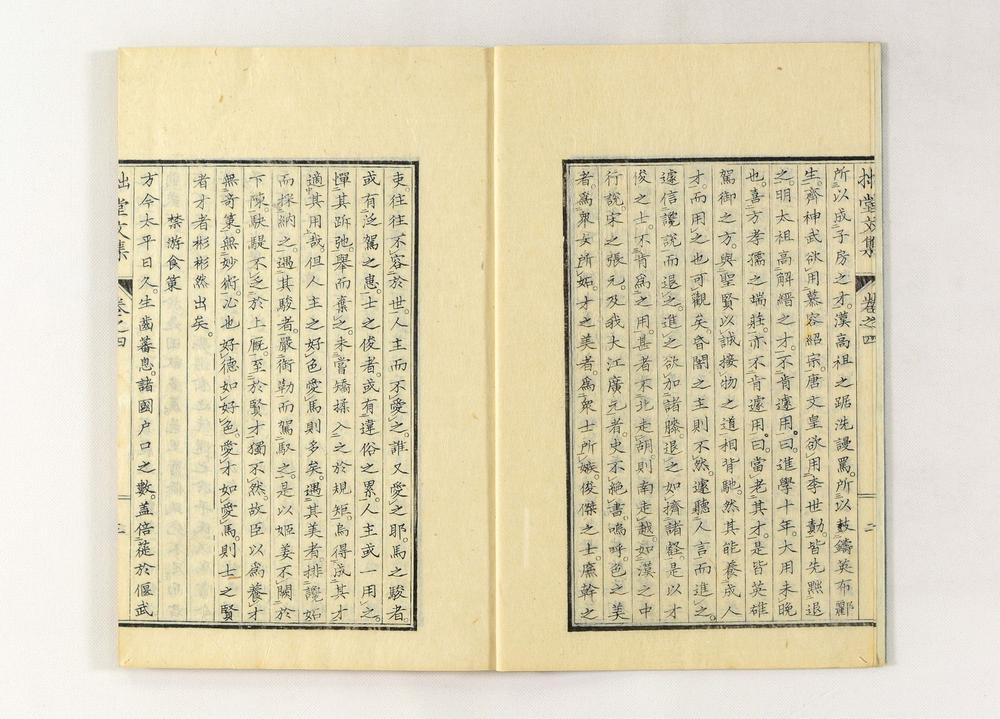 拙堂文集 卷之四 二
所以成子房之才。漢高祖之踞洗謾罵。所以㪅鑄英布酈
生。齊神武欲用慕容紹宗。唐文皇欲用李世勣。皆先黜退
之。明太祖高解縉之才。不肯遽用。曰。進學十年。大用未晚
也。喜方孝孺之端莊。亦不肯遽用。曰。當老其才。是皆英雄
駕御之方。與聖賢以誠接物之道相背馳。然其能養成人
才。而用之也可觀矣。昏闇之主則不然。遽聽人言而進之。
遽信讒説而退之。進之欲加諸膝。退之如擠諸壑。是以才
俊之士。不肯爲之用。甚者不北走胡。則南走越。如漢之中
行説。宋之張元。及我大江廣元者。史不絶書。嗚呼。色之美
者。爲衆女所妬。才之美者。爲衆士所嫉。俊傑之士。廉幹之
吏。往往不容於世。人主而不愛之。誰又愛之耶。馬之駿者。
或有泛駕之患。士之俊者。或有違俗之累。人主或一用之。
憚其跅弛。舉而棄之。未嘗矯揉入之於規矩。烏得成其才
適其用哉。但人主之好色愛馬則多矣。遇其美者。排讒妬
而採納之。遇其駿者。嚴銜勒而駕馭之。是以姬姜不闕於
下陳。駃騠不乏於上廐。至於賢才。獨不然。故臣以爲養才
無奇策。無妙術。心也。好德如好色。愛才如愛馬。則士之賢
者才者。彬彬然出矣。
禁游食策
方今太平日久。生齒蕃息。諸國戸口之數。蓋倍蓰於偃武
拙堂文集 卷之四 三